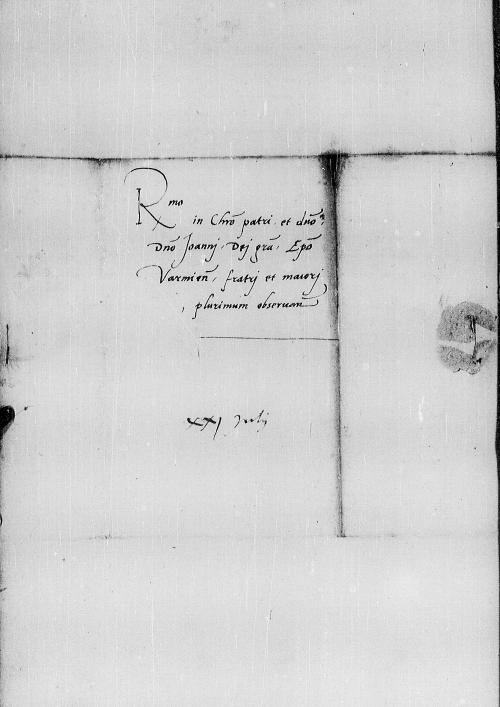 Rmo
in Chrō patri et dnō,
Dnō Joannj Dej grā, Epō
Varmieñ, fratrj et maiorj
plurimum observañ
XXj Julij